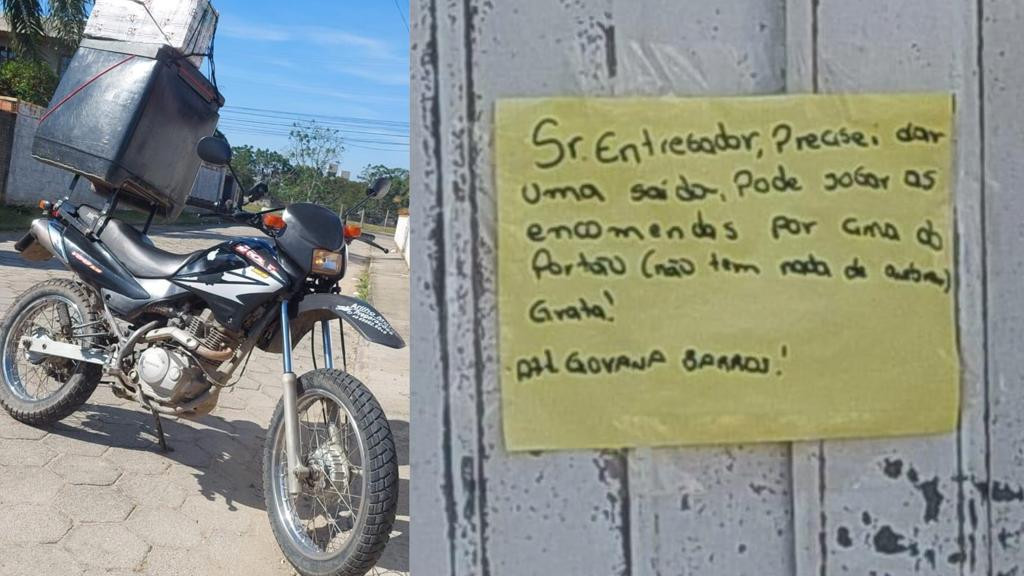 Sr. Entregador, Precisei dar
uma saída, Pode jogar as
encomendas por cima do
Portão (não tem nada de quebrar)
Grata!
Att GIOVANA BARROS!